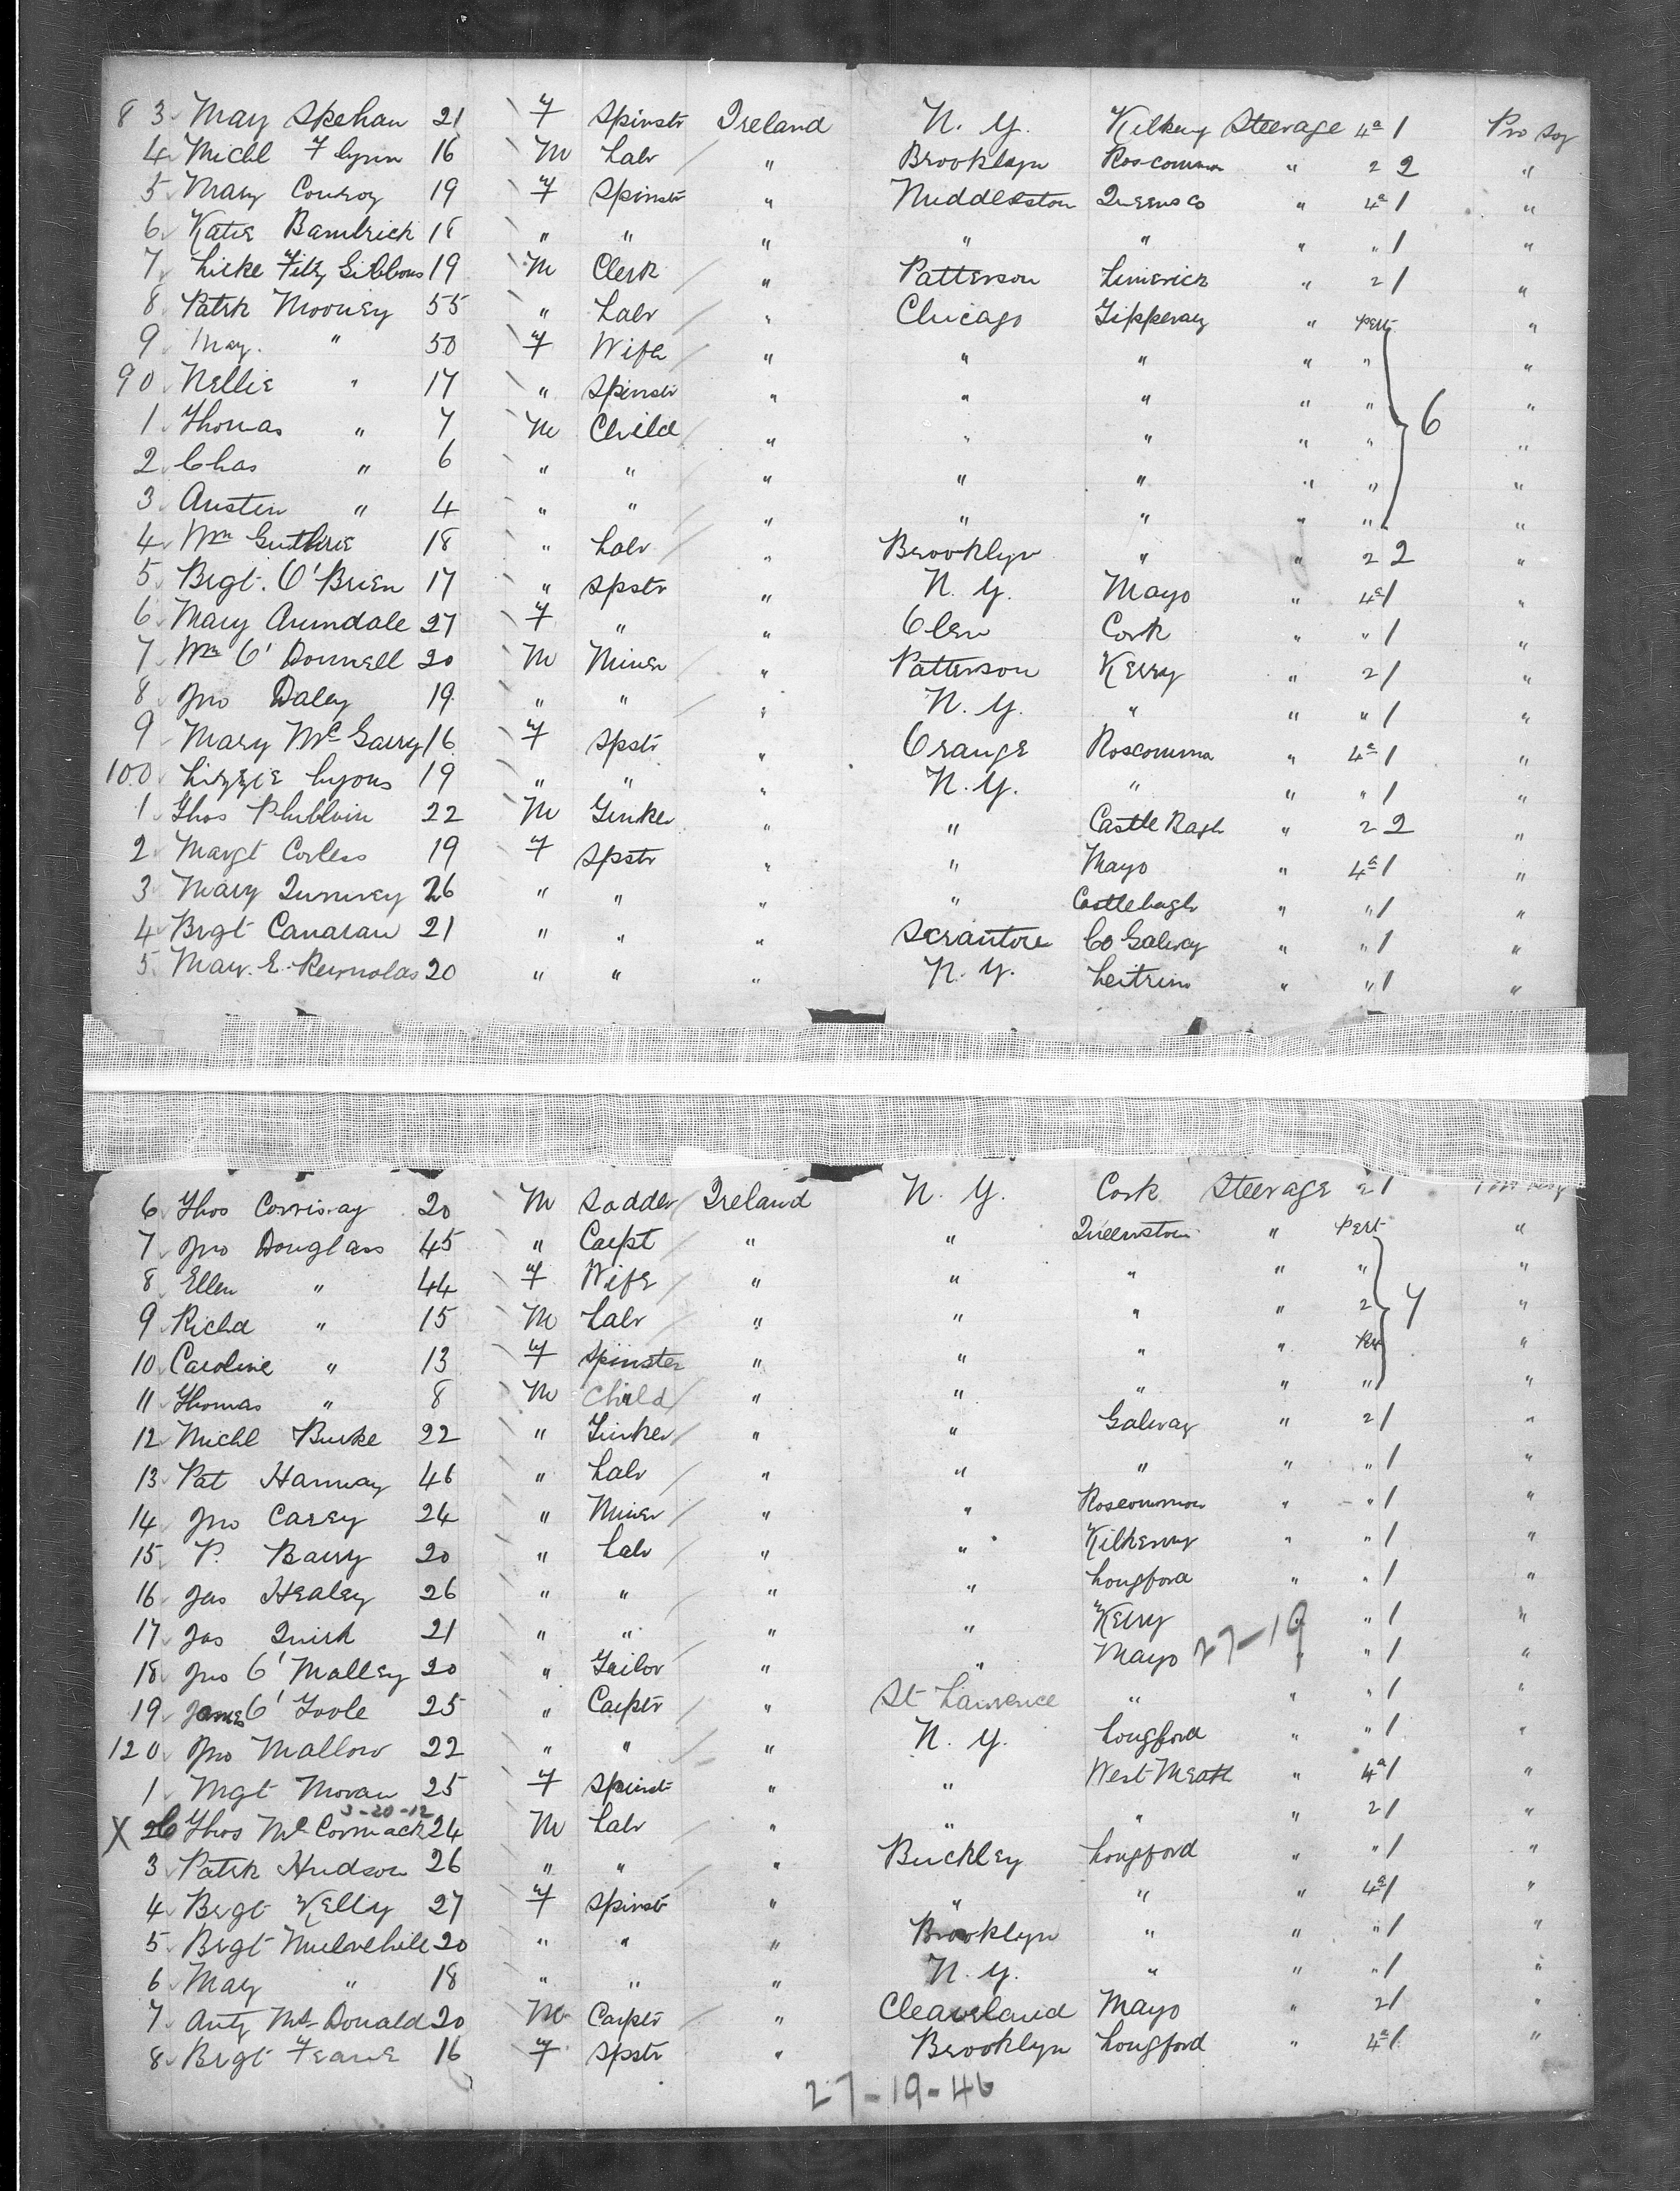 8 3 Mary Skehan 21 F Spinstr Ireland N. Y. Kilkeny Steerage 4a 1 Pro Soj
4 Michl Flynn 16 M Labr " Brooklyn Roscommon " 2 2 "
5 Mary Conroy 19 F Spinstr " Middleston Queens Co " 4a 1 "
6 Katie Bambrick 18 " " " " " " " 1 "
7 Fitz Gibbons 19 M Clerk " Patterson Limerick " 2 1 "
8 Patrk Mooney 55 " Labr " Chicago Tipperary " "
9 May " 50 F Wife " " " " " "
90 Nellie " 17 " Spinstr " " " " " "
1 Thomas " 7 M Child " " " " " 6 "
2 Chas " 6 " " " " " " " "
3 Austin " 4 " " " " " " " "
4 Wm Guthrie 18 " Labr " Brooklyn " " 2 2 "
5 Brgt. O'Brien 17 " Spstr " N. Y. Mayo " 4a 1 "
6 Mary Arundale 27 F " " Olen Cork " " 1 "
7 Wm O'Donnell 20 M Miner " Patterson Kerry " 2 1 "
8 Jno Daley 19 " " " N. Y. " " " 1 "
9 Mary McGarry 16 F Spstr " Orange Roscommn " 4a 1 "
100 Lizzie Lyons 19 " " " N. Y. " " " 1 "
1 Thos Philbin 22 M Tinker " " Castle Bagh " 2 2 "
2 Margt Corless 19 F Spstr " " Mayo " 4a 1 "
3 Mary 26 " " " " Castlebagh " " 1 "
4 Brgt Canavan 21 " " " Scranton Co Galway " " 1 "
5 Mary. E. Reynolds 20 " " " N. Y. Leitrim " " 1 "
6 Thos 20 M Ireland N. Y. Cork Steerage 2 1
7 Jno Douglass 45 " Carpt " " Queenstown " "
8 Ellen " 44 F Wife " " " " " "
9 Richd " 15 M Labr " " " " 2 4 "
10 Caroline " 13 F Spinster " " " " "
11 Thomas " 8 M Child " " " " " "
12 Michl Burke 22 " Tinker " " Galway " 2 1 "
13 Pat Hanway 46 " Labr " " " " " 1 "
14 Jno Carey 24 " Miner " " Roscommon " " 1 "
15 P. Barry 20 " Labr " " Kilkenny " " 1 "
16 Jas Healey 26 " " " " Longford " " 1 "
17 Jas Quirk 21 " " " " Kerry " " 1 "
18 Jno O'Malley 20 " Tailor " " Mayo 27-19 " " 1 "
19 James O'Toole 25 " Carptr " St Lawrence " " " 1 "
120 Jno Mallow 22 " " " N. Y. Longford " " 1 "
1 Mgt Moran 25 F Spinst " " West Meath " 4a 1 "
3-20-12
X 26 Thos McCormack 24 M Labr " " " " 2 1 "
3 Patrk Hudson 26 " " " Buckley Longford " " 1 "
4 Brgt Kelly 27 F Spinstr " " " " 4a 1 "
5 Brgt Mulvehill 20 " " " Brooklyn " " " 1 "
6 Mary " 18 " " " N. Y. " " " 1 "
7 Anty McDonald 20 M Carptr " Cleaveland Mayo " 2 1 "
8 Brgt 16 F Spstr " Brooklyn Longford " 4a 1 "
27-19-46